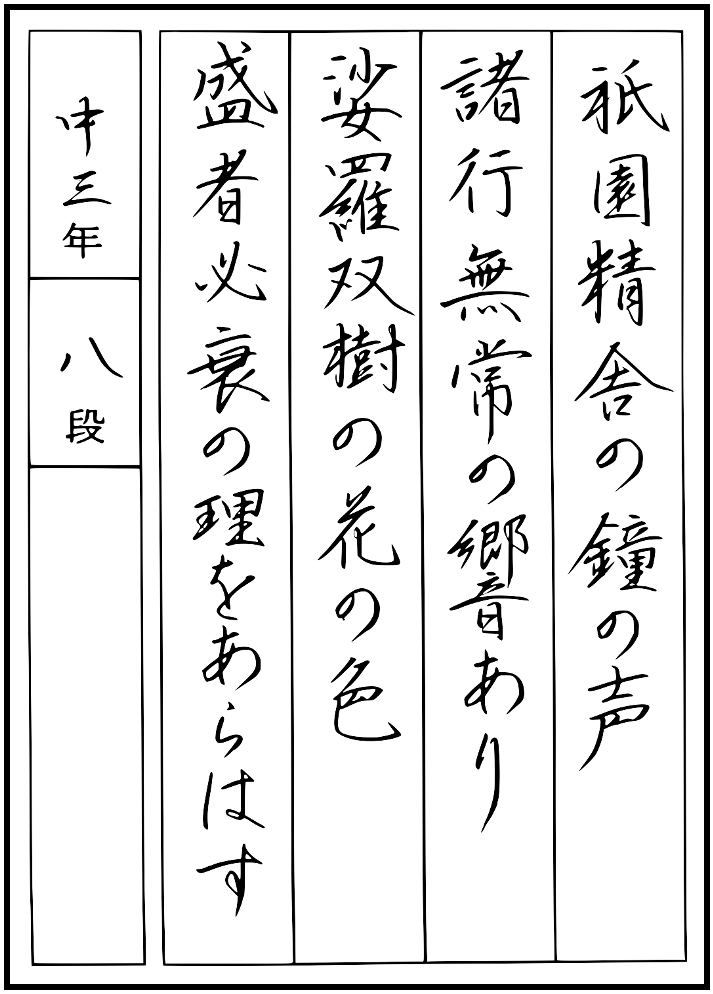 祇園精舎の鐘の声
諸行無常の響あり
娑羅双樹の花の色
盛者必衰の理をあらはす
中三年
八段